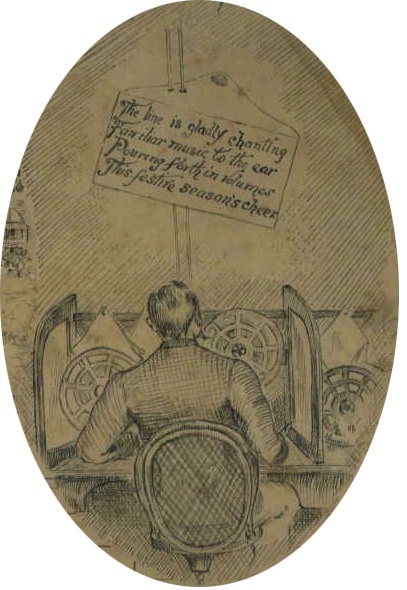 The line is gladly chanting
Familiar music to the ear
Pouring forth in volumes
This festive season's cheer